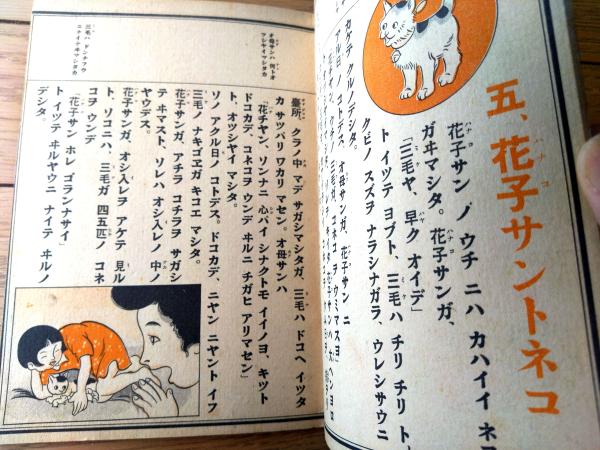 五、花子サントネコ
花子サン ノ ウチ ニハ カハイイ ネコ
ガヰマシタ。花子サンガ、
「三毛ヤ、早ク オイデ」
ト イツテ ヨブト、三毛ハ チリ チリ ト、
クビノ スズヲ ナラシナガラ、ウレシサウニ
カケテ クルノデシタ。
アル日ノ コトデス。オ母サンガ、花子サン ニ
「花子チヤン、ウチノ 三毛ガ、コネコヲ ウミマスヨ」
臺所 クラノ 中 マデ サガシマシタガ、三毛ハ ドコヘ イツタ
カ サツパリ ワカリ マセン。オ母サンハ
「花チヤン、ソンナニ 心パイ シナクトモ イイノヨ、キツト
ドコカデ、コネコヲ ウンデ ヰルニ チガヒ アリマセン」
ト、オツシヤイ マシタ。
ソノ アクル日ノ コトデス。ドコカデ、ニヤン ニヤント イフ
三毛ノ ナキゴヱガ キコエ マシタ。
花子サンガ、アチラ コチラヲ サガシ
テ ヰマスト、ソレハ オシ入レノ 中ノ
ヤウデス。
花子サンガ、オシ入レヲ アケテ 見ル
ト、ソコニハ、三毛ガ 四五匹ノ コネ
コヲ ウンデ
「花子サン ホレ ゴランナサイ」
ト イツテ ヰルヤウニ ナイテ ヰルノ
デシタ。
オ母サンハ 何トオ
ツシヤイマシタカ
三毛ハ ドンナフウ
ニナイテヰマシタカ